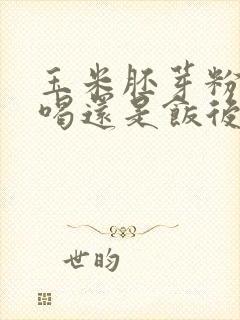 玉米胚芽粉
喝還是飯後
世昀